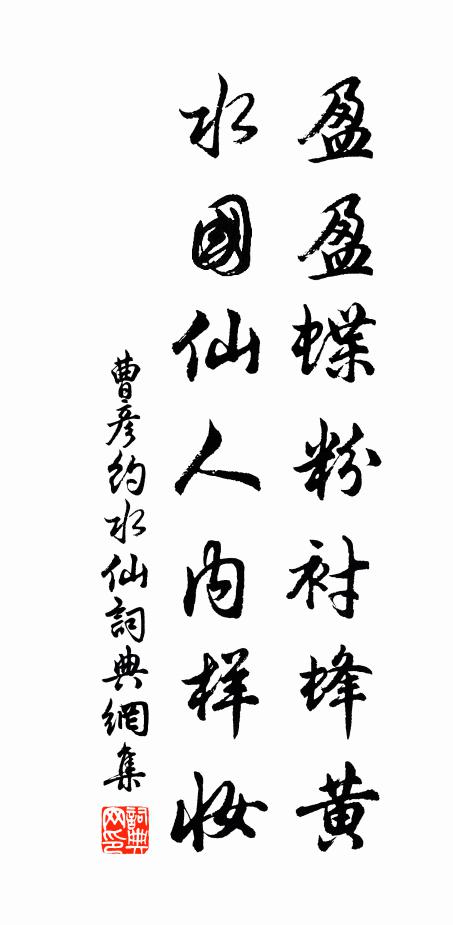 盈盈蝶粉衬蜂黄
水國仙人内样妆
曹彦约水仙詞典網集
詞典网印